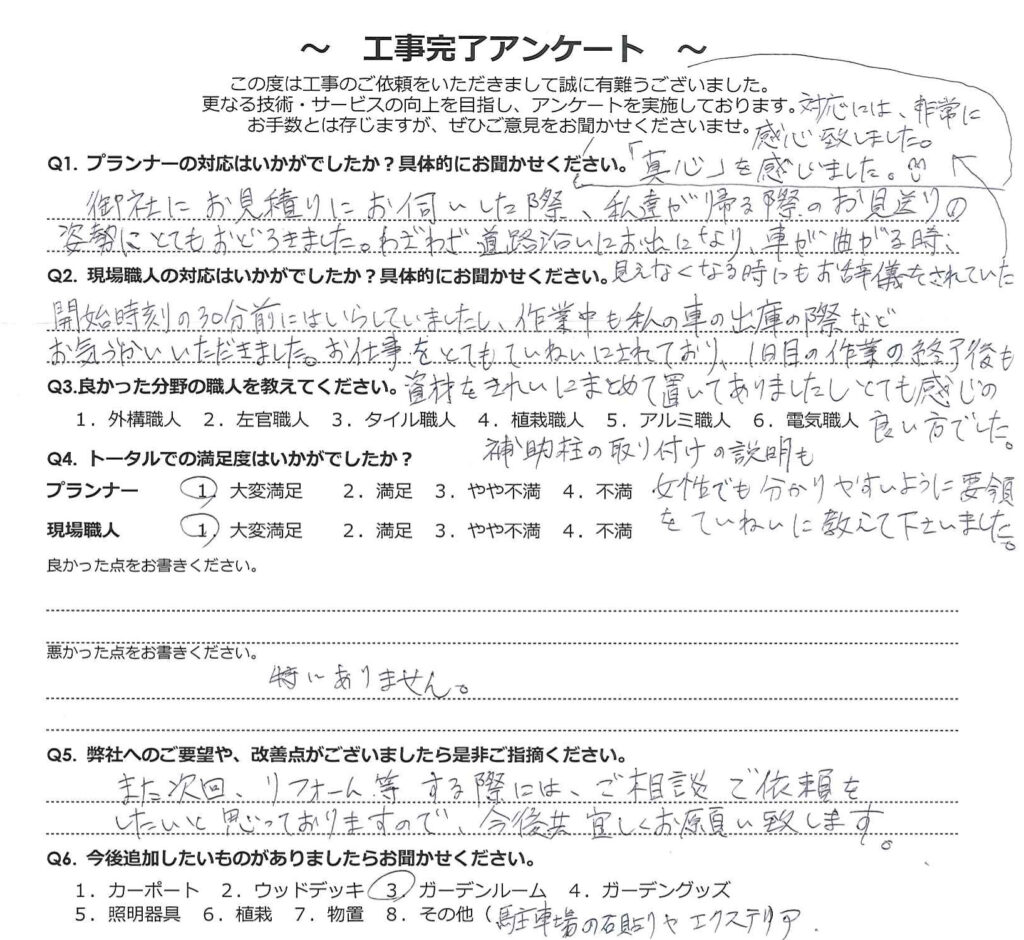 ～ 工事完了アンケート ～
この度は工事のご依頼をいただきまして誠に有難うございました。
更なる技術・サービスの向上を目指し、アンケートを実施しております。
お手数とは存じますが、ぜひご意見をお聞かせくださいませ。
Q1. プランナーの対応はいかがでしたか？具体的にお聞かせください。
御社にお見積りにお伺いした際、私達が帰る際のお見送りの
姿勢にとてもおどろきました。わざわざ道路沿いにお出になり、車が曲がる時、
見えなくなる時にもお辞儀をされていた
対応には、非常に
感心致しました。
「真心」を感じました。
Q2. 現場職人の対応はいかがでしたか？具体的にお聞かせください。
開始時刻の30分前にはいらしていましたし、作業中も私の車の出庫の際など
お気づかいいただきました。お仕事をとてもていねいにされており、1日目の作業の終了後も
資材をきれいにまとめて置いてありましたしとても感じの
良い方でした。
補助柱の取り付けの説明も
女性でも分かりやすいように要領
をていねいに教えて下さいました。
Q3.良かった分野の職人を教えてください。
1．外構職人 2．左官職人 3．タイル職人 4．植栽職人 5．アルミ職人 6．電気職人
Q4. トータルでの満足度はいかがでしたか？
プランナー 1．大変満足 2．満足 3．やや不満 4．不満
現場職人 1．大変満足 2．満足 3．やや不満 4．不満
良かった点をお書きください。
悪かった点をお書きください。
特にありません。
Q5. 弊社へのご要望や、改善点がございましたら是非ご指摘ください。
また次回、リフォーム等する際には、ご相談ご依頼を
したいと思っておりますので、今後共宜しくお願い致します。
Q6. 今後追加したいものがありましたらお聞かせください。
1．カーポート 2．ウッドデッキ 3．ガーデンルーム 4．ガーデングッズ
5．照明器具 6．植栽 7．物置 8．その他（駐車場の石貼りやエクステリア.